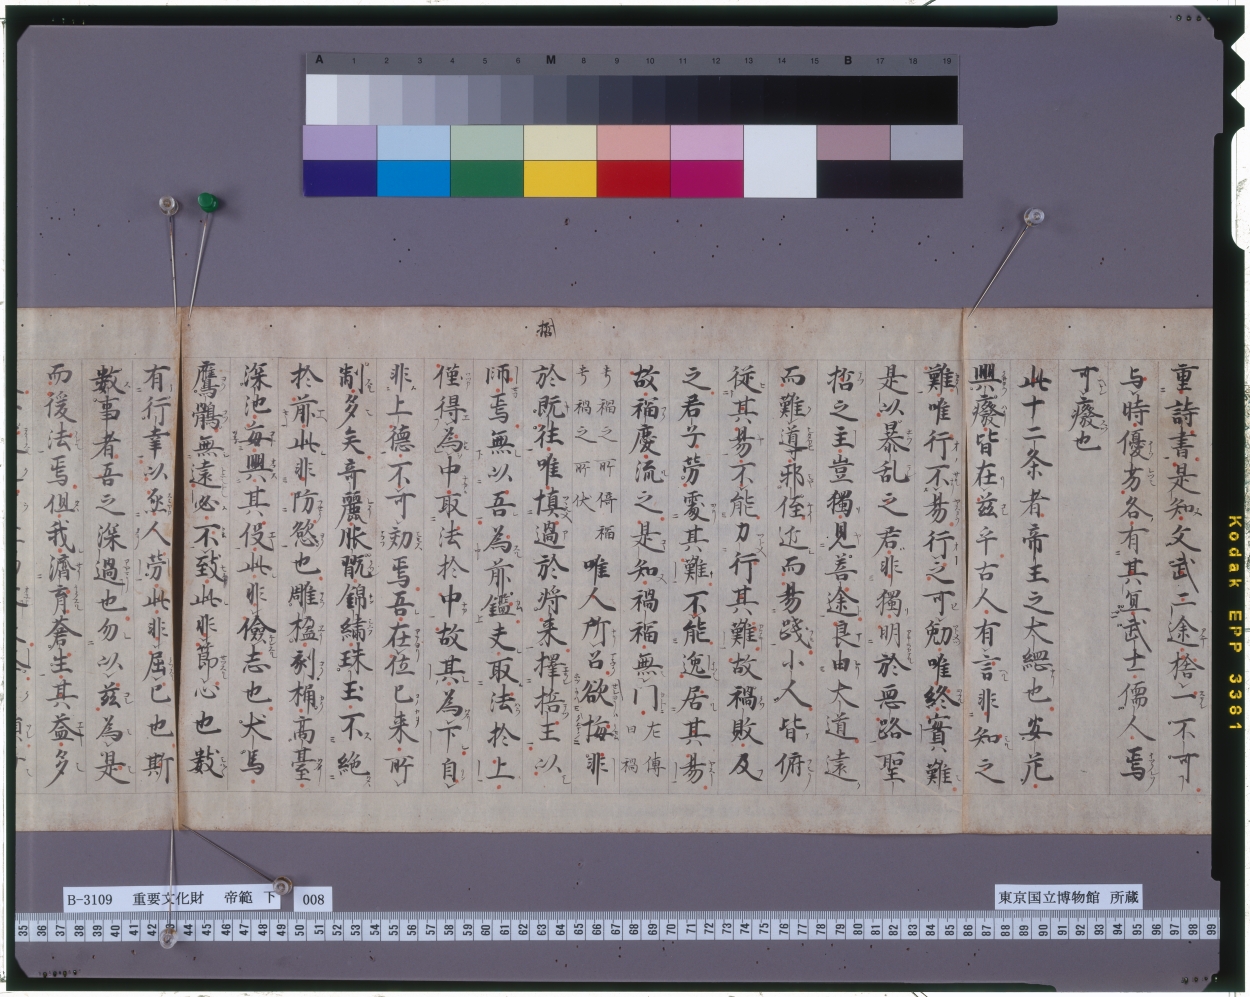 A 1 2 3 4 5 6 M 8 9 10 11 12 13 14 15 B 17 18 19
重詩書是知文武二途捨一不可
与時優劣各有其宜武士儒人焉
可癈也
此十二条者帝王之大綱也安危
興癈皆在玆乎古人有言非知之
難唯行不易行之可勉唯終實難
是以暴乱之君非獨明於悪路聖
悊之主豈獨見善途良由大道遠
而難遵邪径近而易踐小人皆俯
從其易不能力行其難故禍敗及
之君子労處其難不能逸居其易
故福慶流之是知禍福無門 左傳曰禍
兮福之所倚福
兮禍之所伏 唯人所召欲悔非
於既往唯慎過於将来擇悊王以
師焉無以吾為前鑑夫取法於上
僅得為中取法於中故其為下自
非上德不可効焉吾在位已来所
制多矣奇麗服翫錦繡珠玉不絶
於前此非防慾也雕楹刻桷高臺
深池每興其役此非儉志也犬馬
鷹鶻無遠必不致此非節心也數
有行幸以亟人労此非屈己也斯
數事者吾之深過也勿以茲為是
而後法焉但我濟育蒼生其益多
B-3109 重要文化財 帝範 下 008
東京国立博物館 所蔵
35 36 37 38 39 40 41 42 43 44 45 46 47 48 49 50 51 52 53 54 55 56 57 58 59 60 61 62 63 64 65 66 67 68 69 70 71 72 73 74 75 76 77 78 79 80 81 82 83 84 85 86 87 88 89 90 91 92 93 94 95 96 97 98 99
Kodak EPP 3381